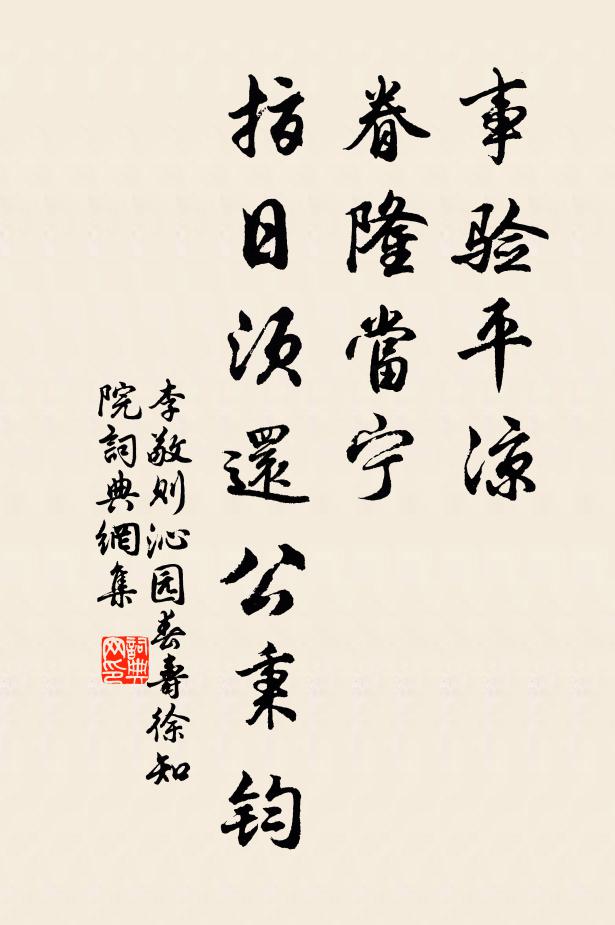 事验平凉
眷隆當宁
指日须還公秉钧
李敬则沁园春寿徐知
院詞典網集
詞典
网印